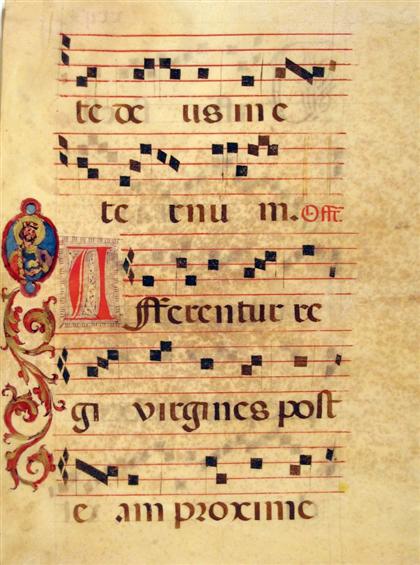 te de us in e
te rnu m. Offt.
Afferentur re
gi virgines post
e am proxime